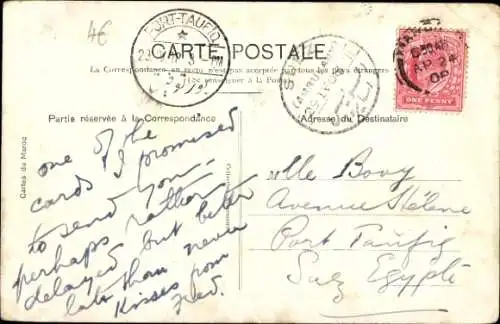 4€
PORT-TAUFIQ
CARTE POSTALE
La Correspondance au recto n'est pas acceptée par tous les pays étrangers
(Se renseigner à la Poste)
ONE PENNY
Partie réservée à la Correspondance
Adresse du Destinataire
Cartes du Maroc
one of the
cards I promised
to send you -
perhaps rather
delayed but better
late than never
Kisses from
Fred.
Mlle Bovy
Avenue Hélène
Port Taufig
Suez Egypte